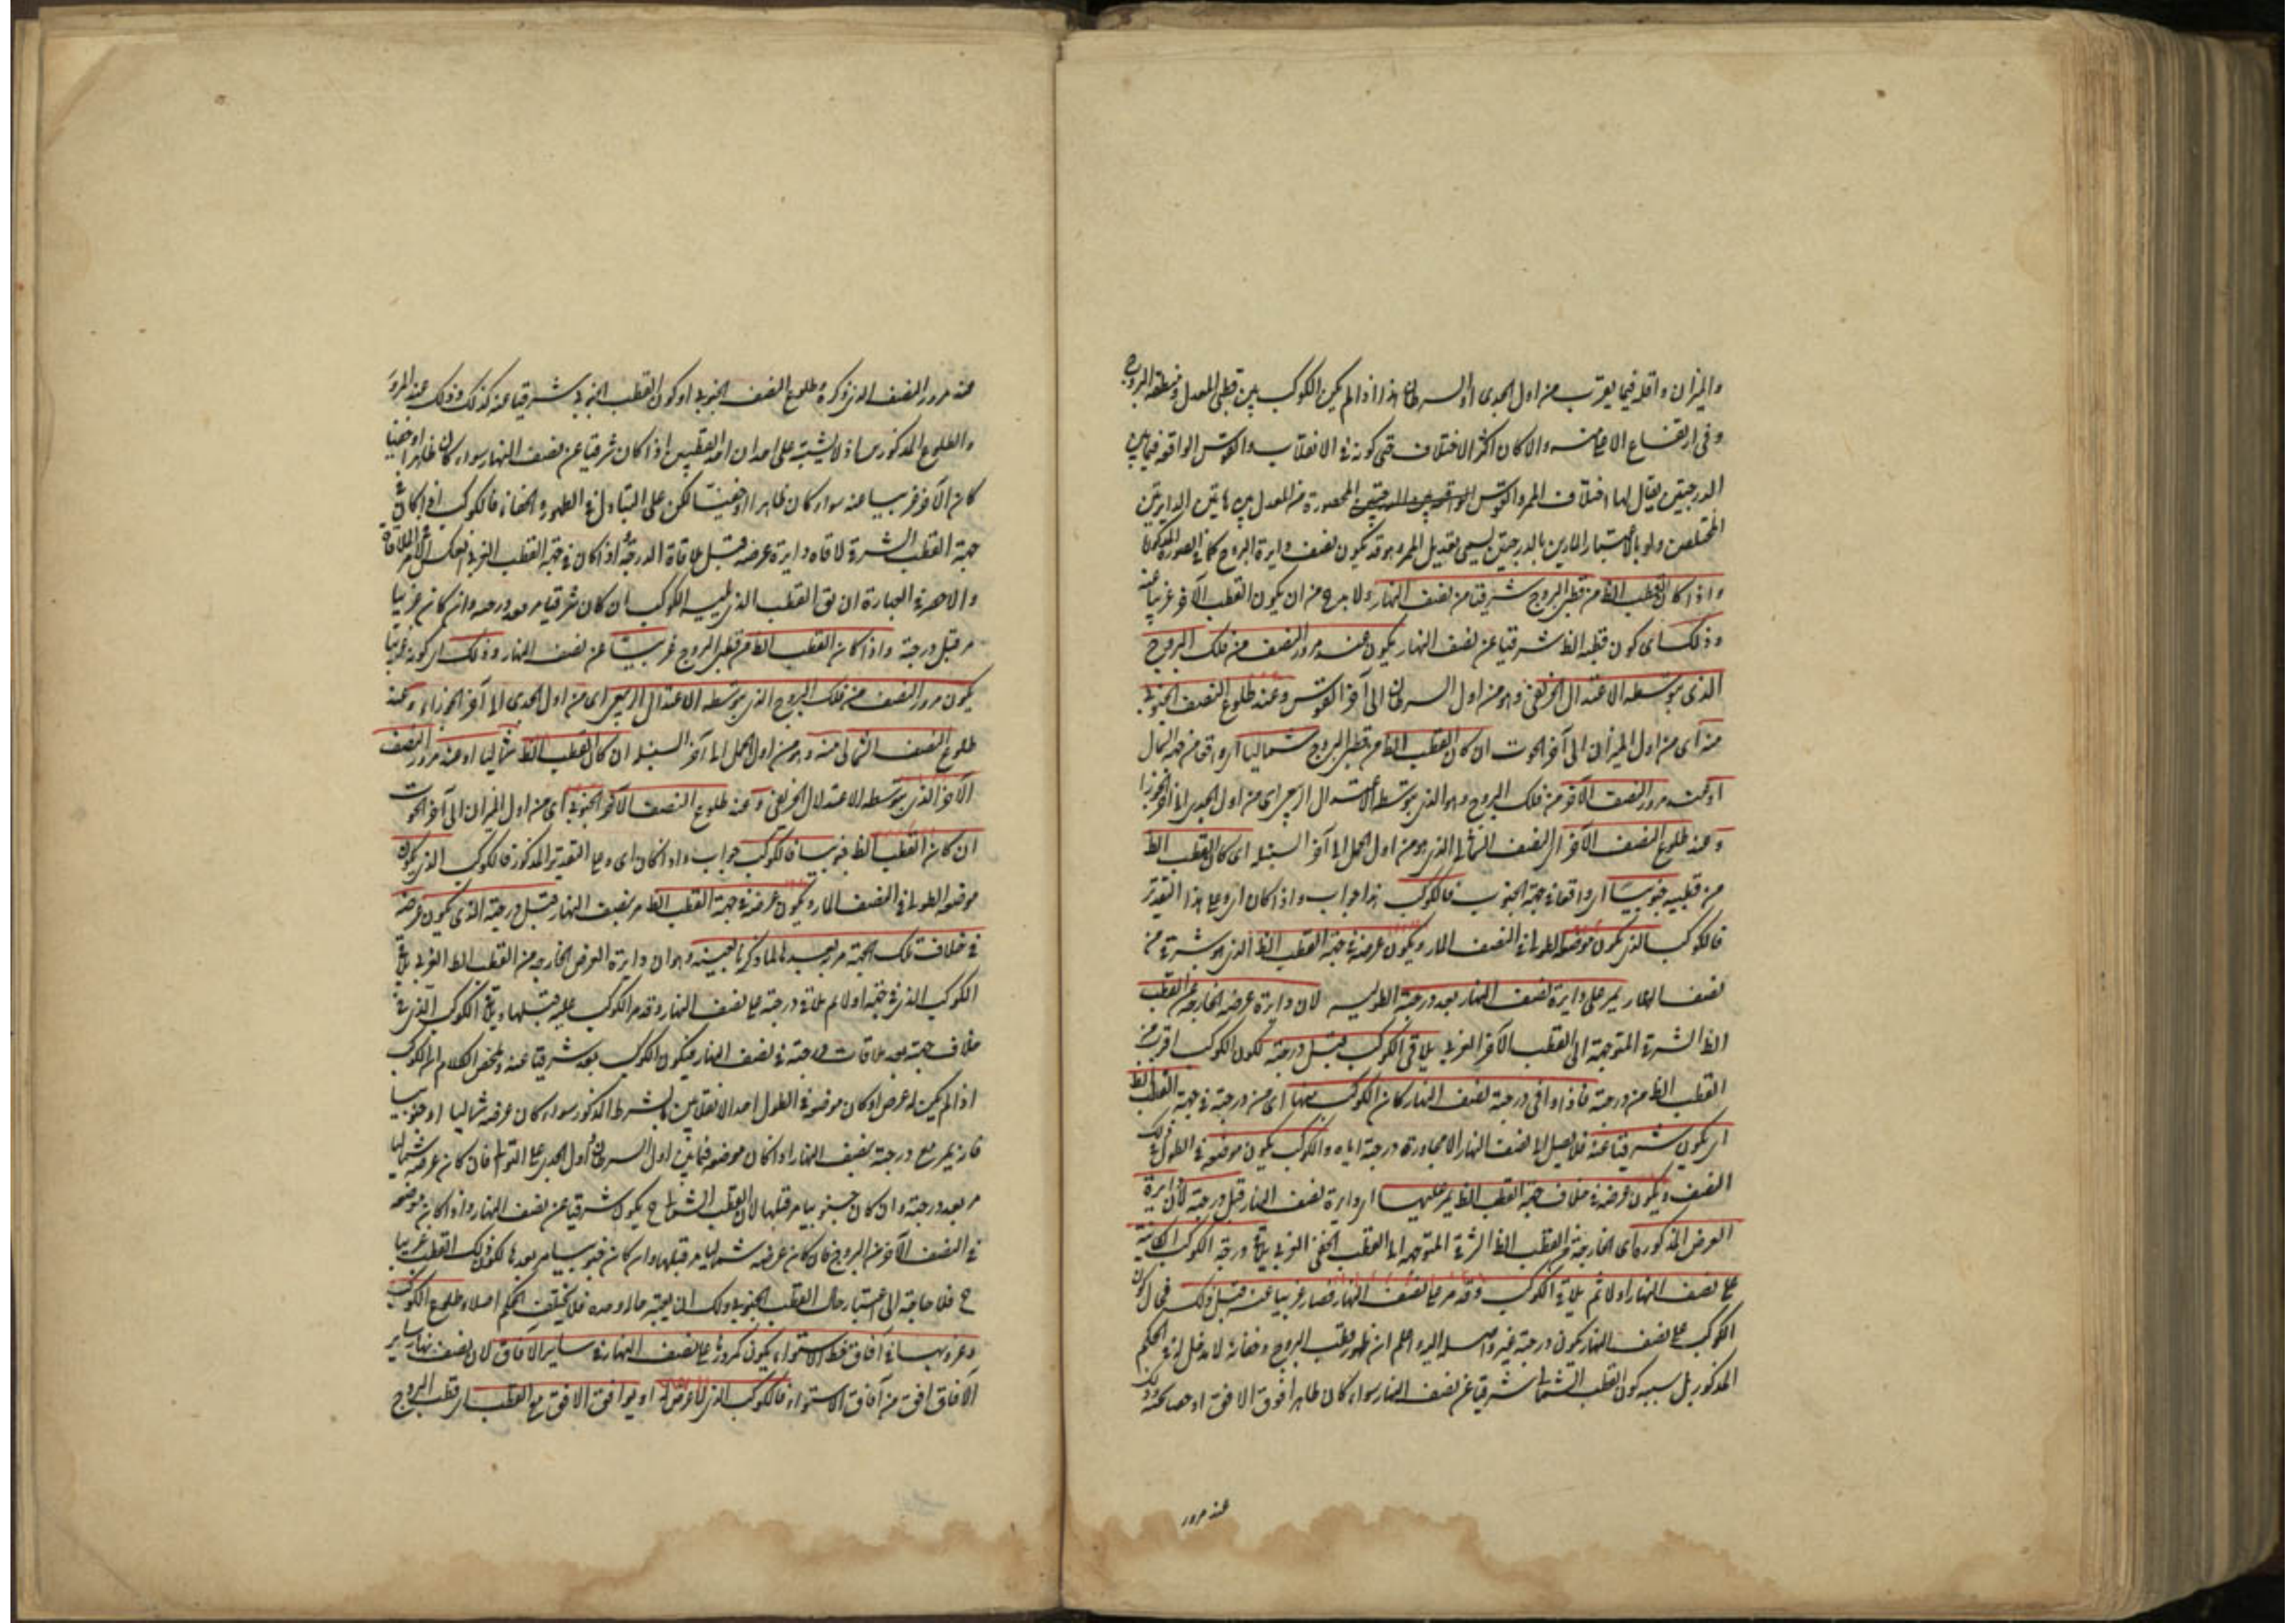 والميزان واقله فيما يقرب من اول الجدى او السرطان هذا اذا لم يكن الكوكب بين قطبى المعدل ومنطقة البروج
وفى ارتفاع والا كان اكثر الاختلاف حتى كونه فى الانقلاب والقوس الواقعة فيما بين
الدرجتين يقال لها اختلاف الممر والقوس المحصورة من المعدل بين هاتين الدايرتين
المارين بالدرجتين يسمى تعديل الممر وهو قد يكون نصف دايرة البروج كما فى الصورة
واذا كان القطب الظ من قطبى البروج شرقيا من نصف النهار ولا بد ح من ان يكون القطب الآخر غربيا عنه
وذلك اى كون قطبه الظ شرقيا عن نصف النهار يكون عند مرور النصف من فلك البروج
الذى يتوسطه الاعتدال الخريفى وهو من اول السرطان الى آخر القوس وعند طلوع النصف الجنوبى
منه اى من اول الميزان الى آخر الحوت ان كان القطب الظ من قطبى البروج شماليا اى واقعا من جهة الشمال
او عند مرور النصف الآخر من فلك البروج وهو الذى يتوسطه الاعتدال الربيعى اى من اول الجدى الى آخر الجوزا
وعند طلوع النصف الآخر اى النصف الشمالى الذى هو من اول الحمل الى آخر السنبلة اى كان القطب الظ
من قطبيه جنوبيا اى واقعا فى جهة الجنوب فالكوكب هذا جواب واذا كان اى وعلى هذا التقدير
فالكوكب الذى يكون موضعه الطولى فى النصف المار ويكون عرضه فى جهة القطب الظ الذى هو شرقى من
نصف النهار يمر على دايرة نصف النهار بعد درجته الطولية لان دايرة عرضه الخارجة من القطب
الظ الشرقى المتوجهة الى القطب الآخر الغربى يلاقى الكوكب قبل درجته لكون الكوكب اقرب من
القطب الظ من درجته فاذا وافى درجته نصف النهار كان الكوكب منها اى من درجته فى جهة القطب الظ
اى يكون شرقيا عنه فلا يصل الى نصف النهار الا بمجاوزة درجته اياه والكوكب يكون موضعه فى الطول فى ذلك
النصف ويكون عرضه فى خلاف جهة القطب الظ يمر عليها اى دايرة نصف النهار قبل درجته لان دايرة
العرض المذكورة اى الخارجة من القطب الظ الشرقى المتوجهة الى القطب الخفى الغربى يلاقى درجة الكوكب الكاينة
على نصف النهار اولا ثم يلاقى الكوكب وقد مر على نصف النهار فصار غربيا عنه قبل ذلك فحال كون
الكوكب على نصف النهار يكون درجته غير واصلة اليه واعلم ان ظهور قطب البروج وخفائه لا مدخل له فى الحكم
المذكور بل سببه كون القطب الشمالى شرقيا عن نصف النهار سواء كان ظاهرا فوق الافق او وذلك
عند مرور
عند مرور النصف الذى ذكره وطلوع النصف الجنوبى او كون القطب الجنوبى شرقيا عنه كذلك وذلك عند المرور
والطلوع المذكورين اذ لا يشتبه على احد ان احد القطبين اذا كان شرقيا عن نصف النهار سواء كان ظاهرا او خفيا
كان الآخر غربيا عنه سواء كان ظاهرا او خفيا لكن على التبادل فى الظهور والخفاء فالكوكب اذا كان فى
جهة القطب الشرقى لاقاه دايرة عرضه قبل ملاقاة الدرجة واذا كان فى جهة القطب الغربى انعكس الملاقاة
والاحصر فى العبارة ان يق القطب الذى يليه الكوكب ان كان شرقيا مر بعد درجته وان كان غربيا
مر قبل درجته واذا كان القطب الظ من قطبى البروج غربيا عن نصف النهار وذلك اى كونه غربيا
يكون مرور النصف من فلك البروج الذى يتوسطه الاعتدال الربيعى اى من اول الجدى الى آخر الجوزاء وعند
طلوع النصف الشمالى منه وهو من اول الحمل الى آخر السنبلة ان كان القطب الظ شماليا او عند مرور النصف
الآخر الذى يتوسطه الاعتدال الخريفى وعند طلوع النصف الآخر الجنوبى اى من اول الميزان الى آخر الحوت
ان كان القطب الظ جنوبيا فالكوكب جواب واذا كان اى وعلى التقدير المذكور فالكوكب الذى يكون
موضعه الطولى فى النصف المار ويكون عرضه فى جهة القطب الظ مر بنصف النهار قبل درجته والذى يكون عرضه
فى خلاف تلك الجهة مر بعدها لما ذكرنا بعينه وهو ان دايرة العرض الخارجة من القطب الظ الغربى يلاقى
الكوكب الذى فى جهته اولا ثم يلاقى درجته على نصف النهار وقد مر الكوكب عليه قبلها ويلاقى الكوكب الذى فى
خلاف جهته بعد ملاقات درجته فى نصف النهار فيكون الكوكب بعد شرقيا عنه وملخص الكلام ان الكوكب
اذا لم يكن له عرض او كان موضعه فى الطول احد الانقلابين بالشرط المذكور سواء كان عرضه شماليا او جنوبيا
فانه يمر مع درجته بنصف النهار واذا كان موضعه فيما بين اول السرطان واول الجدى على التوالى فان كان عرضه شماليا
مر بعد درجته وان كان جنوبيا مر قبلها لان القطب الشمالى ح يكون شرقيا عن نصف النهار واذا كان موضعه
فى النصف الآخر من البروج فان كان عرضه شماليا مر قبلها وان كان جنوبيا مر بعدها لكون ذلك القطب غربيا
ح فلا حاجة الى اعتبار حال القطب الجنوبى ولك ان يعتبر حاله وحده فلا يختلف الحكم اصلا وطلوع الكواكب
وغروبها فى آفاق خط الاستواء يكون كمرورها على نصف النهار فى ساير الآفاق لان نصف نهار ساير
الآفاق افق من آفاق الاستواء فالكوكب الذى لا عرض له او يوافق الافق مع القطب اى قطب البروج